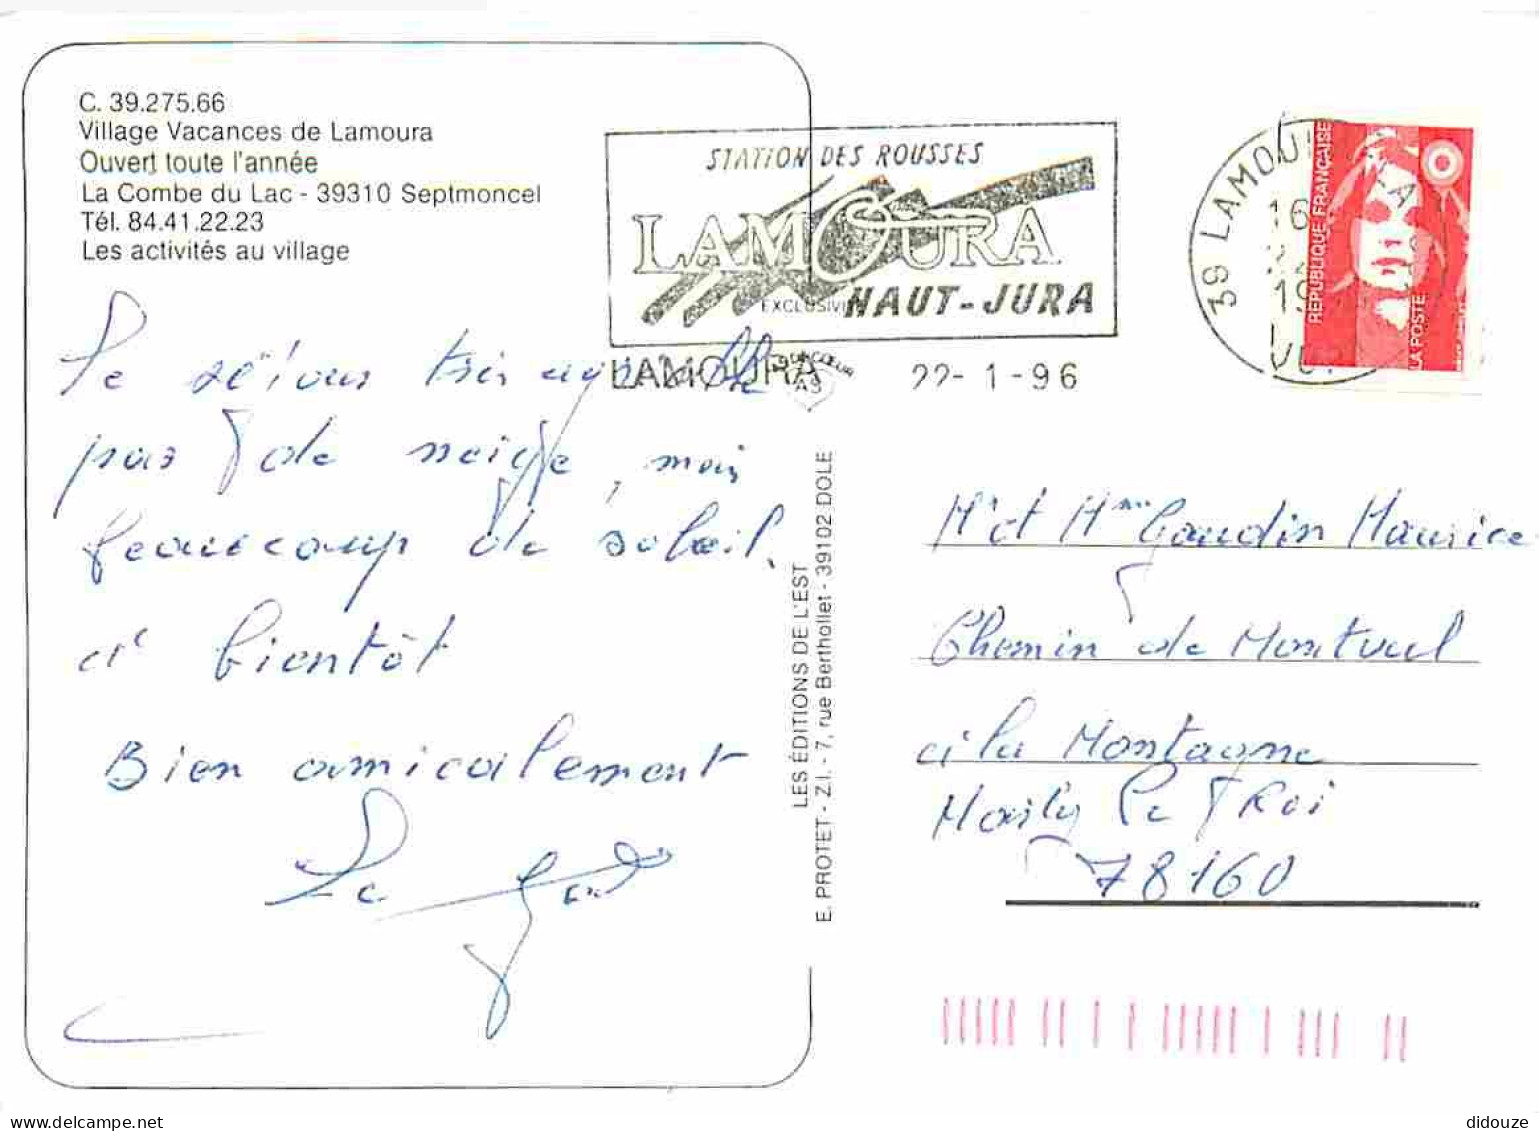 C. 39.275.66
Village Vacances de Lamoura
Ouvert toute l'année
La Combe du Lac - 39310 Septmoncel
Tél. 84.41.22.23
Les activités au village
STATION DES ROUSSES
LAMOURA
HAUT-JURA
LAMOURA
22-1-96
39 LAMOURA
16
19
REPUBLIQUE FRANÇAISE
LA POSTE
très agréable
pas de neige, mais
beaucoup de soleil.
a bientôt
Bien amicalement
LES ÉDITIONS DE L'EST
E. PROTET - Z.I. - 7, rue Berthollet - 39102 DOLE
Mr et Mme Gaudin Maurice
Chemin de Montval
à la Montagne
Marly Le Roi
78160
didouze